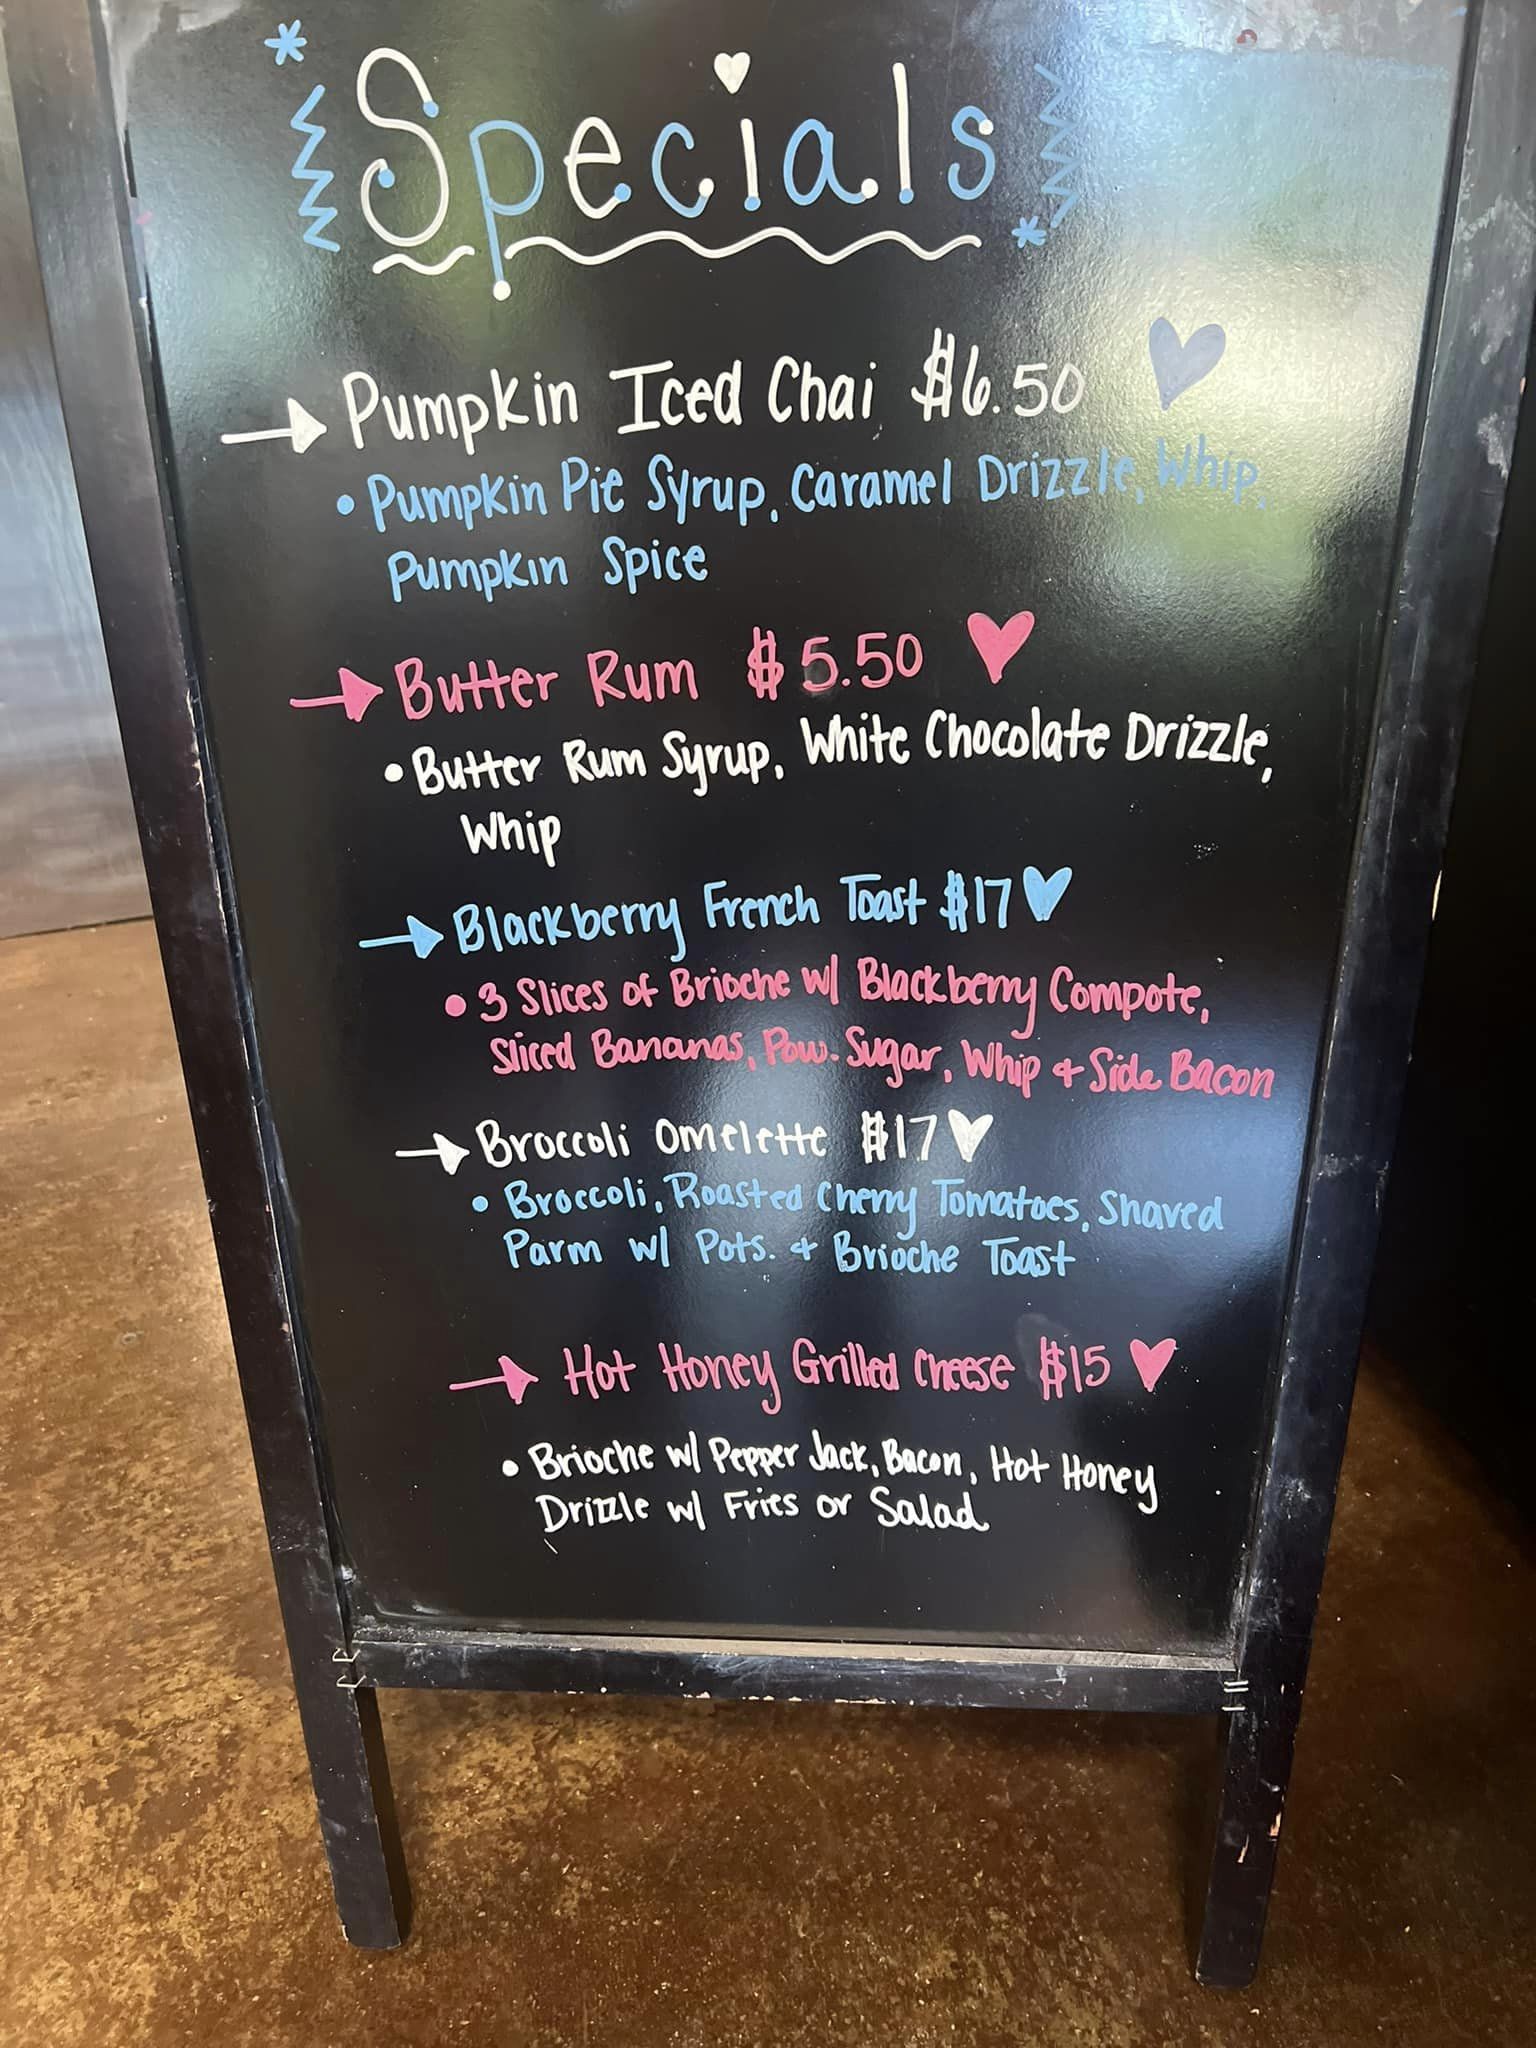 Specials
Pumpkin Iced Chai $6.50
• Pumpkin Pie Syrup, Caramel Drizzle, Whip,
Pumpkin Spice
Butter Rum $5.50
• Butter Rum Syrup, White Chocolate Drizzle,
Whip
Blackberry French Toast $17
• 3 Slices of Brioche w/ Blackberry Compote,
Sliced Bananas, Pow. Sugar, Whip & Side Bacon
Broccoli Omelette $17
• Broccoli, Roasted Cherry Tomatoes, Shaved
Parm w/ Pots. & Brioche Toast
Hot Honey Grilled Cheese $15
• Brioche w/ Pepper Jack, Bacon, Hot Honey
Drizzle w/ Fries or Salad